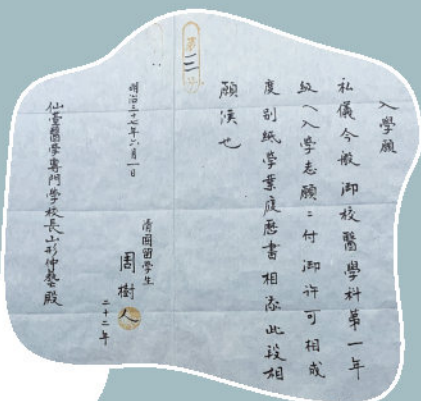 入學願
私儀今般御校醫學科第一年
級ヘ入學志願ニ付御許可相成
度別紙學業履歷書相添此段相
願候也
第三号
明治三十七年六月一日
清國留學生
周樹人
二十二年
仙臺醫學專門學校長山形仲藝殿